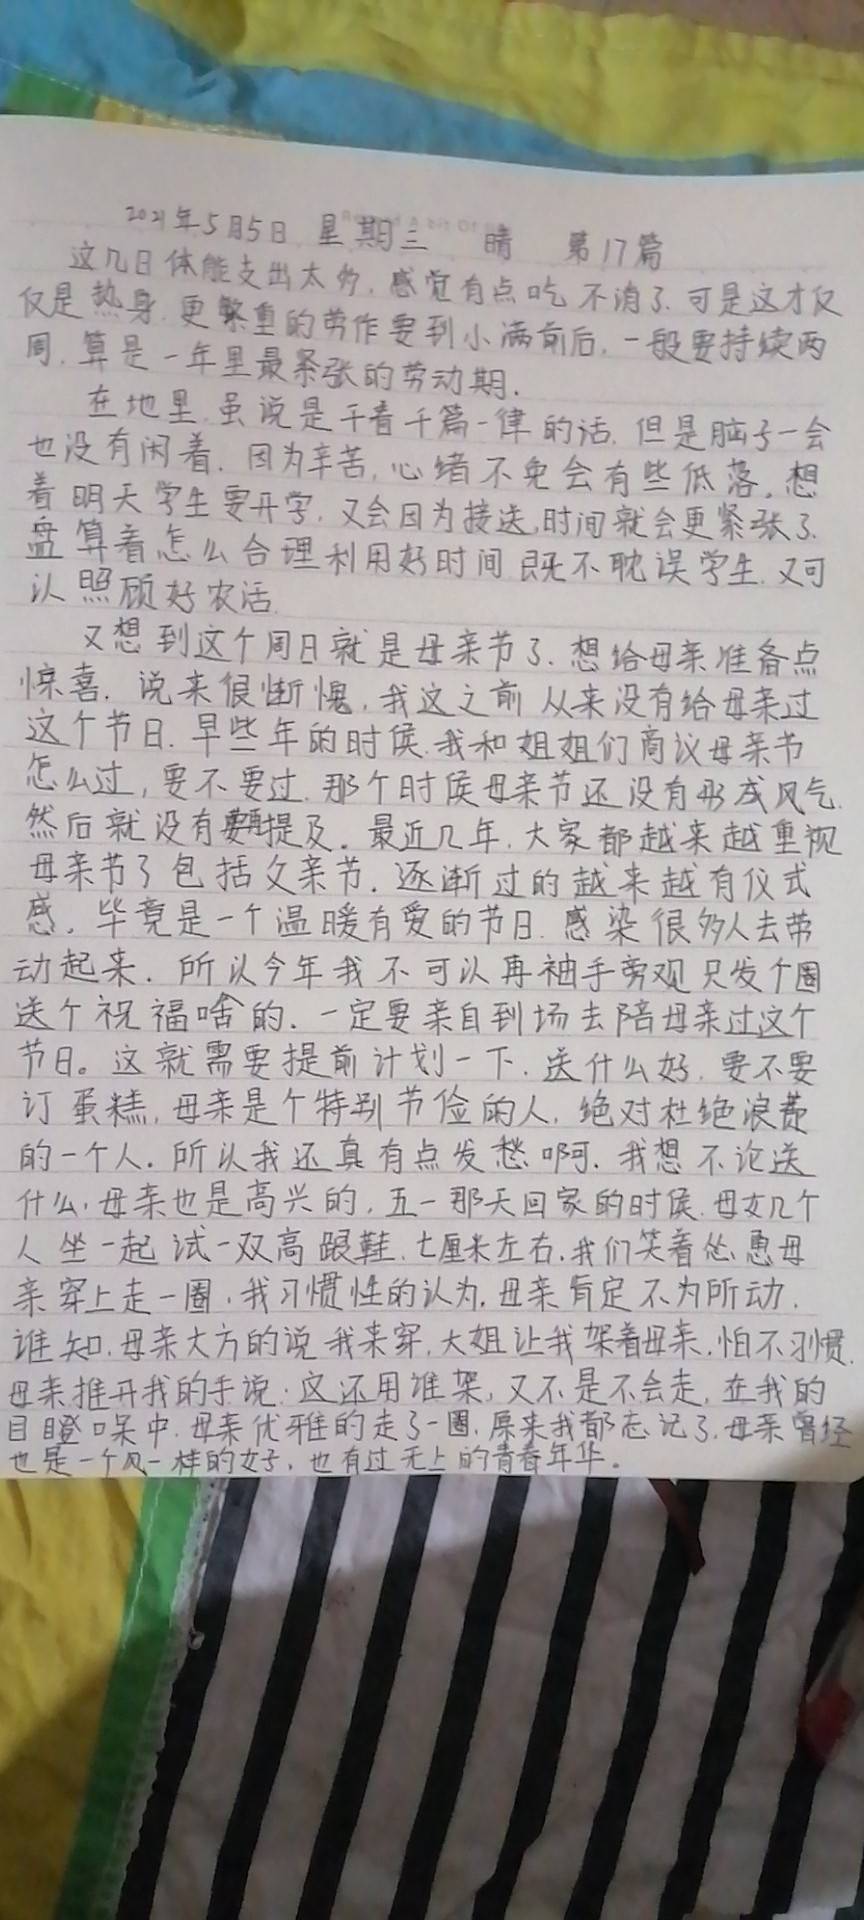 2021年5月5日 星期三 晴 第17篇
这几日体能支出太多,感觉有点吃不消了.可是这才仅
仅是热身.更繁重的劳作要到小满前后,一般要持续两
周,算是一年里最紧张的劳动期.
在地里,虽说是干着千篇一律的活,但是脑子一会
也没有闲着.因为辛苦,心绪不免会有些低落,想
着明天学生要开学,又会因为接送,时间就会更紧张了.
盘算着怎么合理利用好时间既不耽误学生,又可
以照顾好农活.
又想到这个周日就是母亲节了.想给母亲准备点
惊喜.说来很惭愧,我这之前从来没有给母亲过
这个节日.早些年的时候,我和姐姐们商议母亲节
怎么过,要不要过.那个时候母亲节还没有形成风气.
然后就没有再提及.最近几年,大家都越来越重视
母亲节了包括父亲节.逐渐过的越来越有仪式
感.毕竟是一个温暖有爱的节日.感染很多人去带
动起来.所以今年我不可以再袖手旁观只发个圈
送个祝福啥的.一定要亲自到场去陪母亲过这个
节日。这就需要提前计划一下.送什么好.要不要
订蛋糕,母亲是个特别节俭的人,绝对杜绝浪费
的一个人.所以我还真有点发愁啊.我想不论送
什么,母亲也是高兴的,五一那天回家的时候,母女几个
人坐一起试一双高跟鞋,七厘米左右,我们笑着怂恿母
亲穿上走一圈,我习惯性的认为,母亲肯定不为所动.
谁知,母亲大方的说我来穿,大姐让我架着母亲,怕不习惯.
母亲推开我的手说:这还用谁架,又不是不会走,在我的
目瞪口呆中,母亲优雅的走了一圈,原来我都忘记了,母亲曾经
也是一个风一样的女子,也有过无上的青春年华。